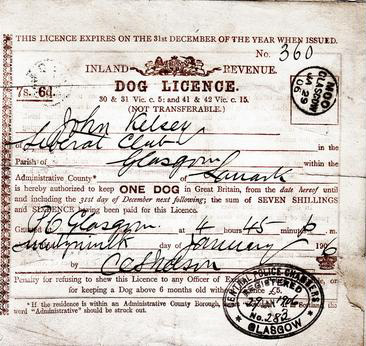 THIS LICENCE EXPIRES ON THE 31st DECEMBER OF THE YEAR WHEN ISSUED.
No. 360
INLAND REVENUE.
DOG LICENCE.
7s. 6d.
30 & 31 Vic. c. 5; and 41 & 42 Vic. c. 15.
(NOT TRANSFERABLE.)
GLASGOW
JA 29
06
John Kelsey
of Liberal Club in the
Parish of Glasgow within the
Administrative County* of Lanark
is hereby authorized to keep ONE DOG in Great Britain, from the date hereof until
and including the 31st day of December next following; the sum of SEVEN SHILLINGS
and SIXPENCE having been paid for this Licence.
Granted at Glasgow at 4 hours 45 minutes p. m.
day of January 190
by
Penalty for refusing to shew this Licence to any Officer of
for keeping a Dog above 6 months old £5.
* If the residence is within an Administrative County Borough,
word "Administrative" should be struck out.
CENTRAL POLICE CHAMBERS
REGISTERED
29 JAN 1906
No. 283
GLASGOW